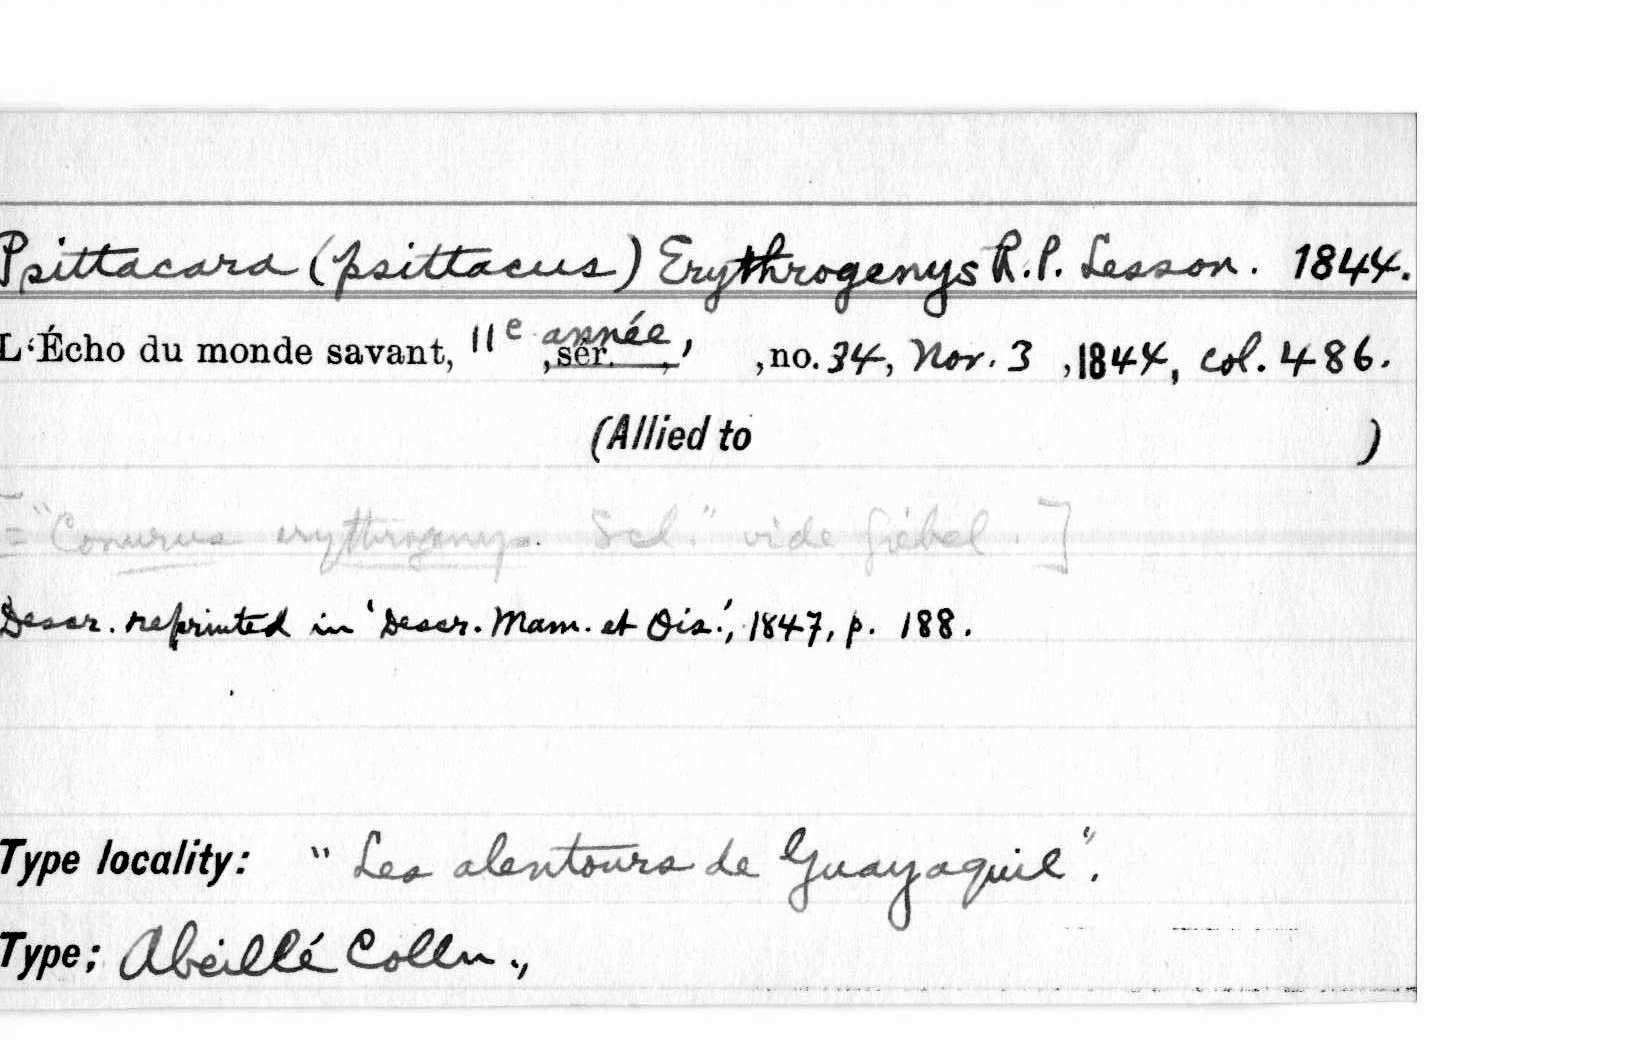 Psittacara (psittacus) Erythrogenys R.P. Lesson. 1844.
L'Écho du monde savant, 11e année, ,sér. , ,no. 34, Nov. 3 ,1844, col. 486.
(Allied to )
[= "Conurus erythrogenys. Scl." vide Giebel.]
Descr. reprinted in 'Descr. Mam. et Ois.', 1847, p. 188.
Type locality: "Les alentours de Guayaquil".
Type: Abeillé Colln.,